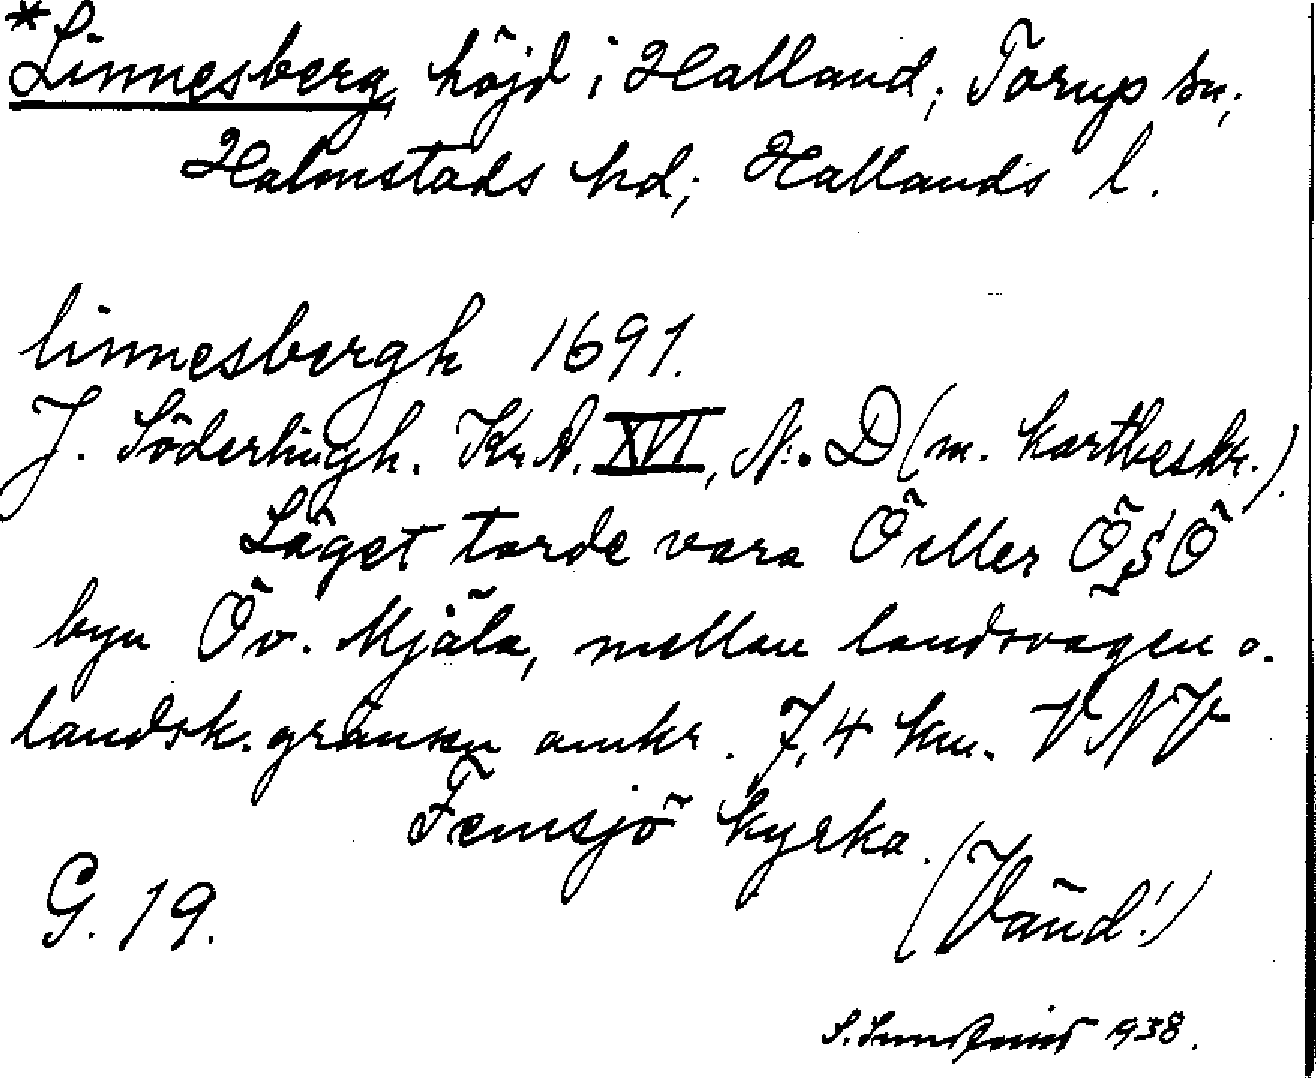 *Linnesberg, höjd i Halland, Torup sn,
Halmstads hd, Hallands l.
linnesbergh 1691.
J. Söderlingh. Kr.A. XVI, N:o D (m. kartbeskr.).
Läget torde vara Ö eller Ö§Ö
byn Öv. Mjäla, mellan landsvägen o.
landsk.gränsen omkr. 7,4 km. VNV
Femsjö kyrka.
(Vänd!)
G. 19.
1938.